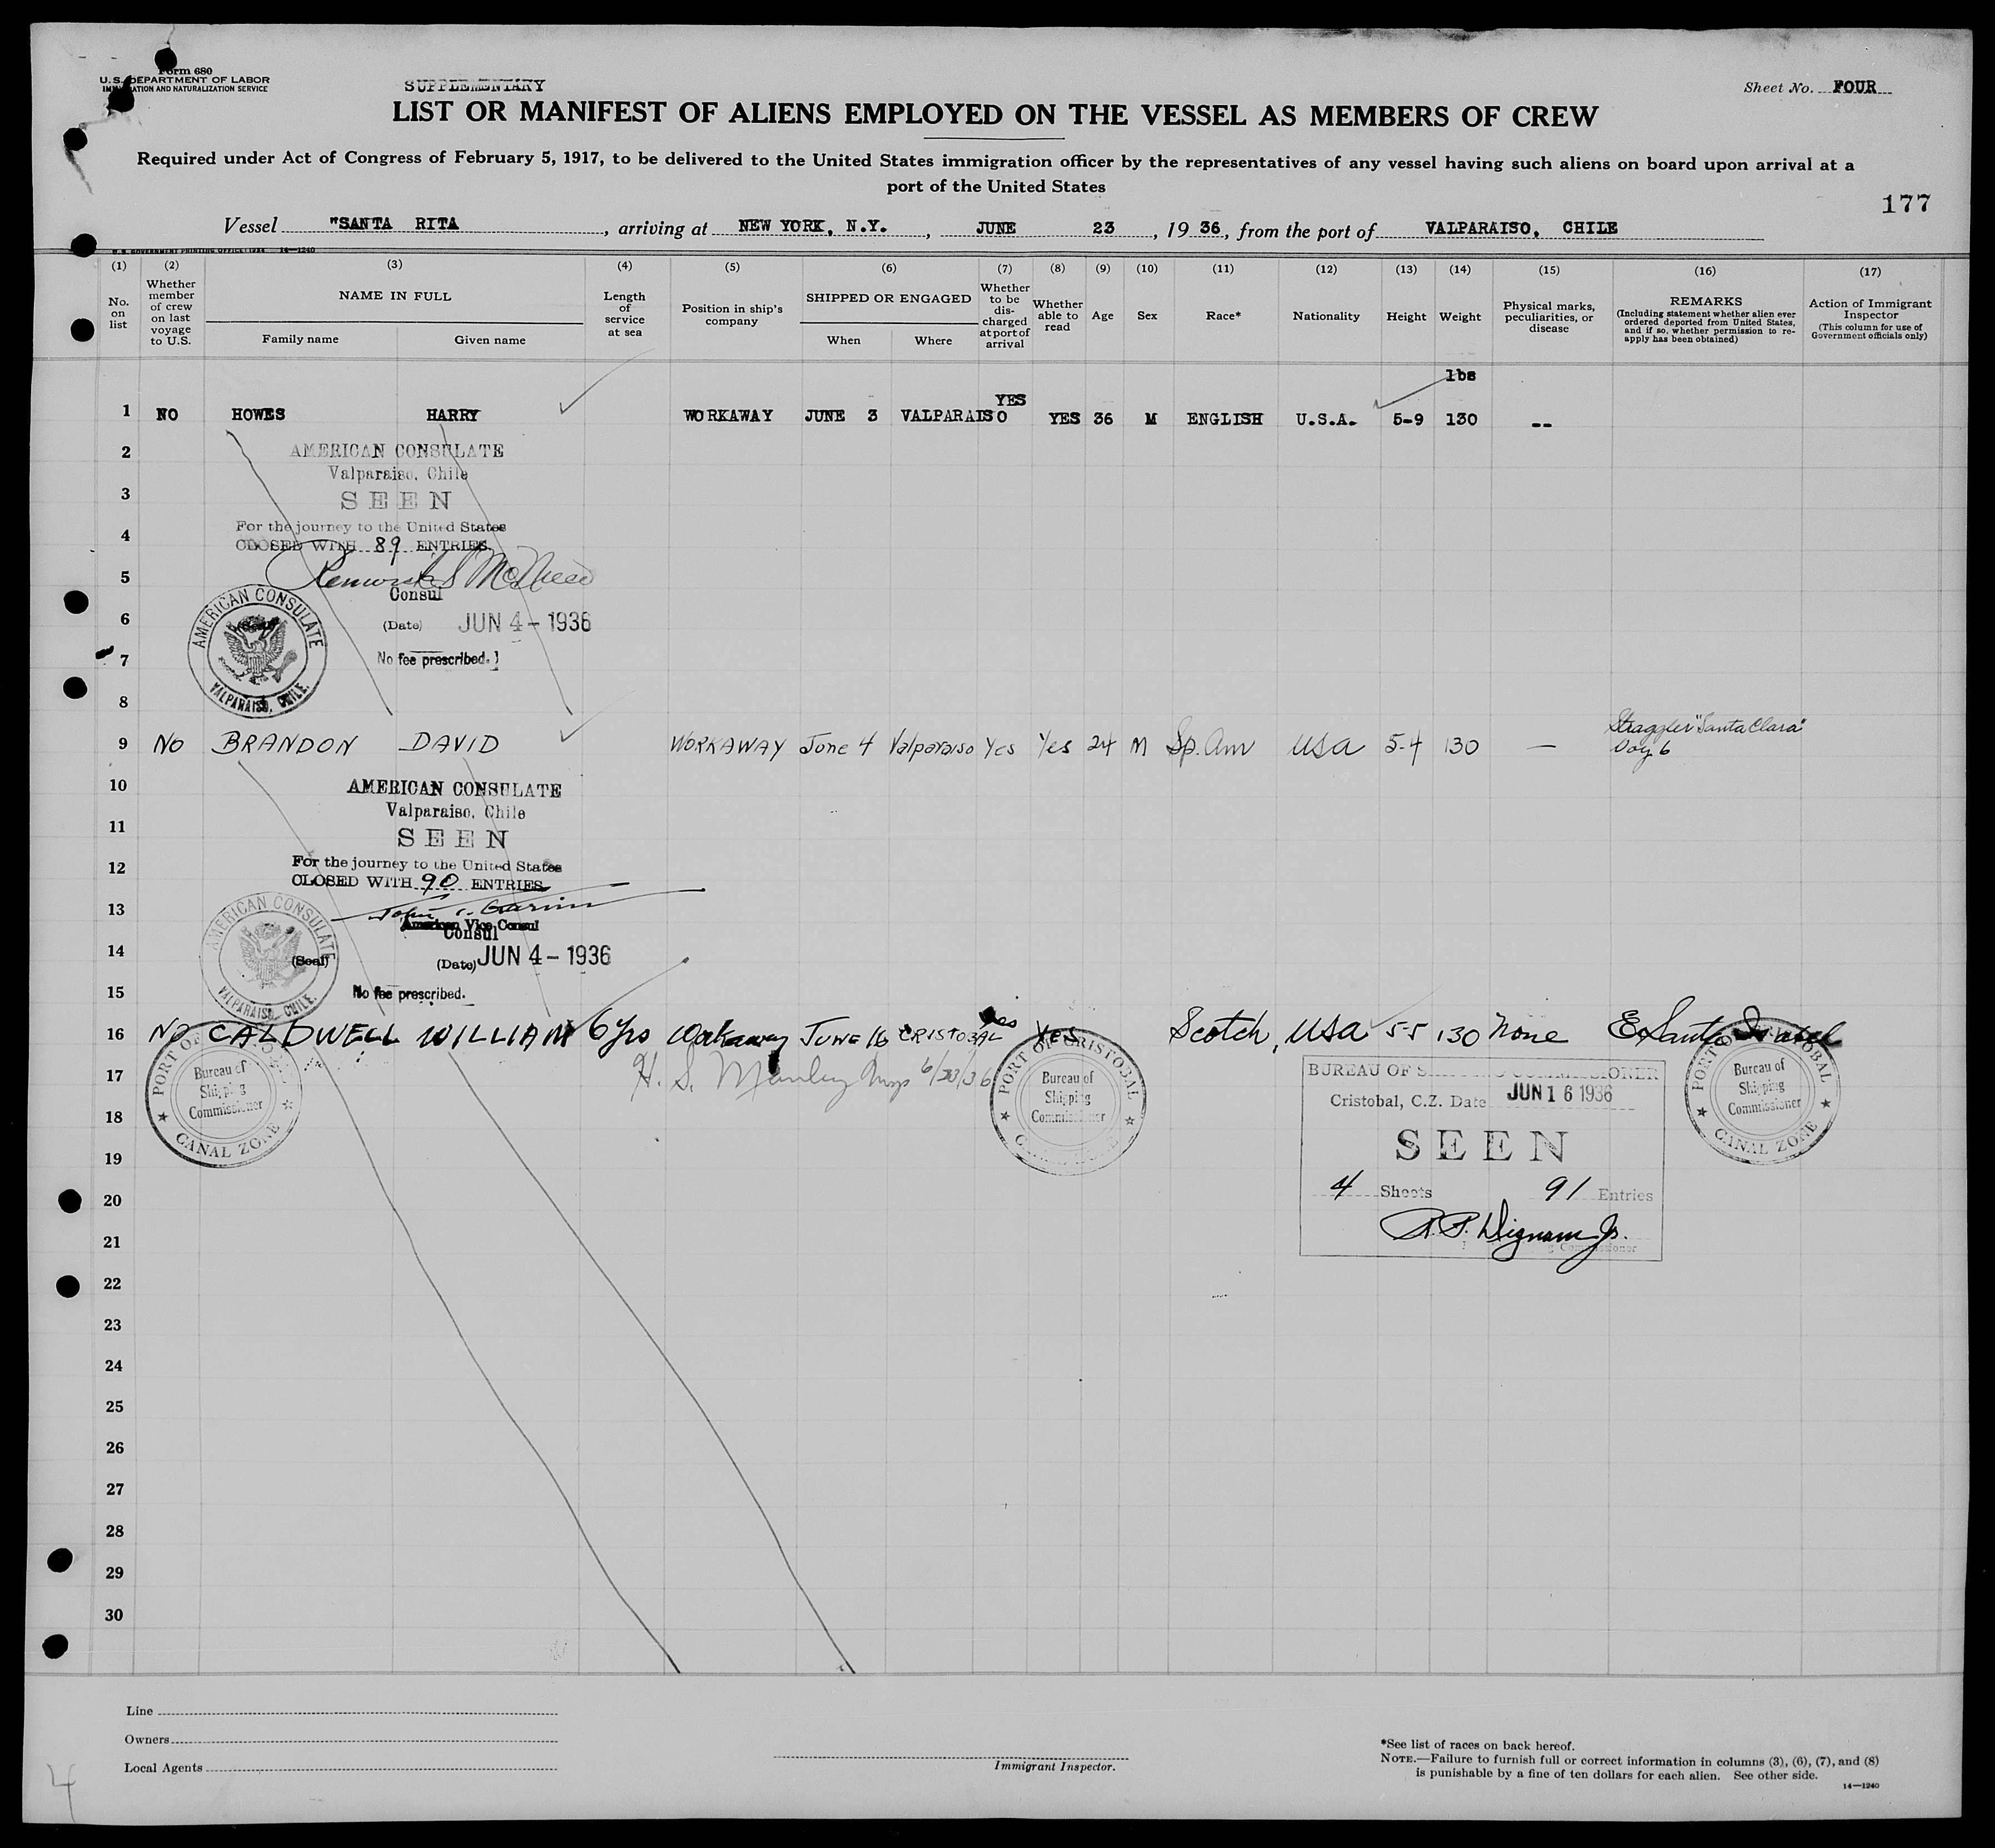 Form 680
U. S. DEPARTMENT OF LABOR
IMMIGRATION AND NATURALIZATION SERVICE
SUPPLEMENTARY
Sheet No. FOUR
LIST OR MANIFEST OF ALIENS EMPLOYED ON THE VESSEL AS MEMBERS OF CREW
Required under Act of Congress of February 5, 1917, to be delivered to the United States immigration officer by the representatives of any vessel having such aliens on board upon arrival at a
port of the United States
177
Vessel "SANTA RITA , arriving at NEW YORK, N.Y. , JUNE 23 , 19 36, from the port of VALPARAISO, CHILE
U. S. GOVERNMENT PRINTING OFFICE: 1934 14—1240
(1) (2) (3) (4) (5) (6) (7) (8) (9) (10) (11) (12) (13) (14) (15) (16) (17)
No. on list
Whether member of crew on last voyage to U.S.
NAME IN FULL
Family name Given name
Length of service at sea
Position in ship's company
SHIPPED OR ENGAGED
When Where
Whether to be discharged at port of arrival
Whether able to read
Age
Sex
Race*
Nationality
Height
Weight
Physical marks, peculiarities, or disease
REMARKS
(Including statement whether alien ever ordered deported from United States, and if so, whether permission to reapply has been obtained)
Action of Immigrant Inspector
(This column for use of Government officials only)
lbs
1 NO HOWES HARRY WORKAWAY JUNE 3 VALPARAISO YES YES 36 M ENGLISH U.S.A. 5-9 130 --
2 AMERICAN CONSULATE
Valparaiso, Chile
3 SEEN
4 For the journey to the United States
CLOSED WITH 89 ENTRIES.
5
Consul
6 (Date) JUN 4 - 1936
7 No fee prescribed.
AMERICAN CONSULATE
VALPARAISO, CHILE.
8
9 NO BRANDON DAVID WORKAWAY June 4 Valparaiso Yes Yes 24 M Sp. Am USA 5-4 130 — Straggler "Santa Clara"
Voy 6
10 AMERICAN CONSULATE
Valparaiso, Chile
11 SEEN
12 For the journey to the United States
CLOSED WITH 90 ENTRIES
13
American Vice Consul
Consul
14 (Seal) (Date) JUN 4 - 1936
15 No fee prescribed.
AMERICAN CONSULATE
VALPARAISO, CHILE.
16 NO CALDWELL WILLIAM 6 yrs Workaway JUNE 16 CRISTOBAL Yes YES Scotch, USA 5-5 130 None
17 H. S. Manley
PORT OF CRISTOBAL
Bureau of
Shipping
Commissioner
CANAL ZONE
PORT OF CRISTOBAL
Bureau of
Shipping
Commissioner
BUREAU OF SHIPPING COMMISSIONER
Cristobal, C.Z. Date JUN 16 1936
SEEN
4 Sheets 91 Entries
R. P. Dignam Jr.
PORT OF CRISTOBAL
Bureau of
Shipping
Commissioner
CANAL ZONE
18
19
20
21
22
23
24
25
26
27
28
29
30
Line
Owners
Local Agents
Immigrant Inspector.
*See list of races on back hereof.
NOTE.—Failure to furnish full or correct information in columns (3), (6), (7), and (8)
is punishable by a fine of ten dollars for each alien. See other side.
14—1240
4